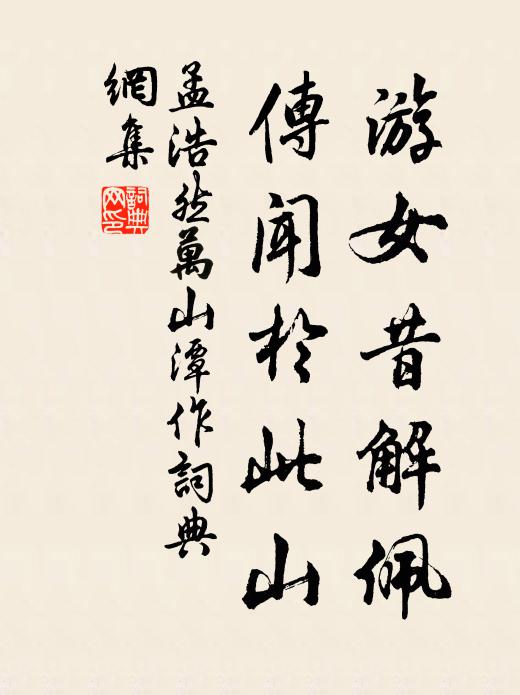 游女昔解佩
傳聞於此山
孟浩然萬山潭作詞典
網集
詞典網印